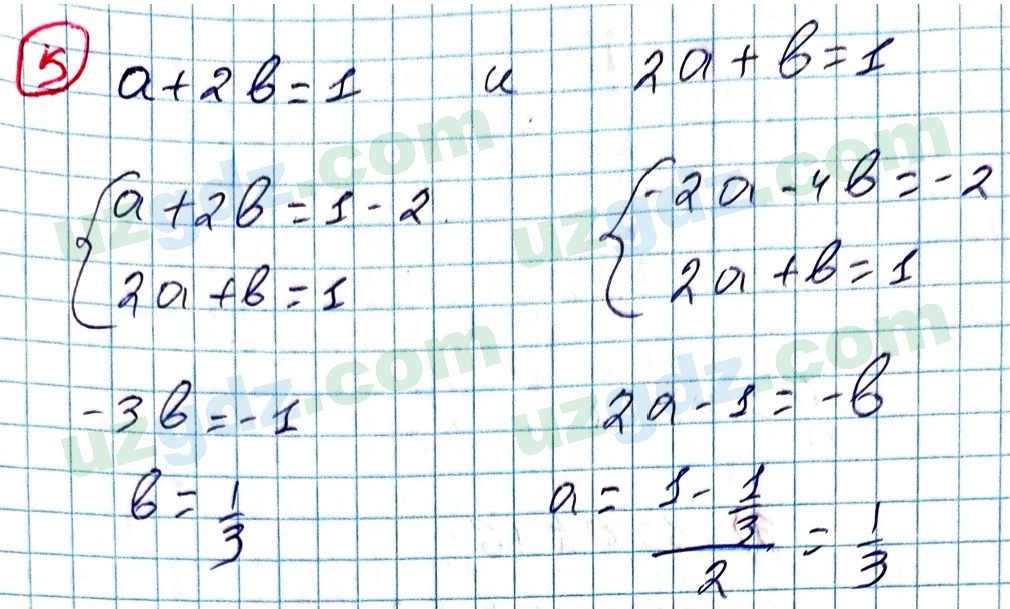 5 a + 2b = 1 и 2a + b = 1
{ a + 2b = 1 - 2 { -2a - 4b = -2
2a + b = 1 2a + b = 1
-3b = -1 2a - 1 = -b
b = 1/3 a = (1 - 1/3)/2 = 1/3
uzgdz.com uzgdz.com
uzgdz.com uzgdz.com